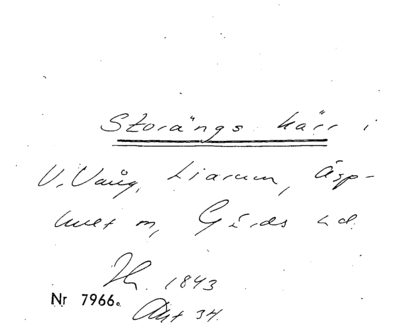 Storängs kärr i
V. Vång, Liarum, Äsp-
hult sn, Gärds hd.
1843
Nr 7966.
Akt 34.